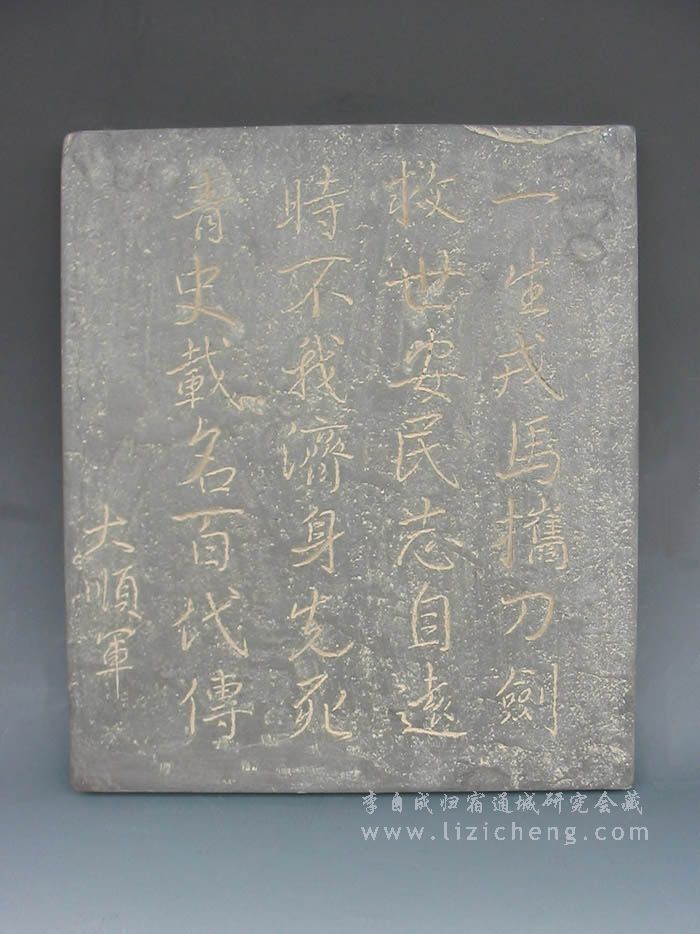 一生戎馬攜刀劍
救世安民志自遠
時不我濟身先死
青史載名百代傳
大順軍
李自成归宿通城研究会藏
www.lizicheng.com